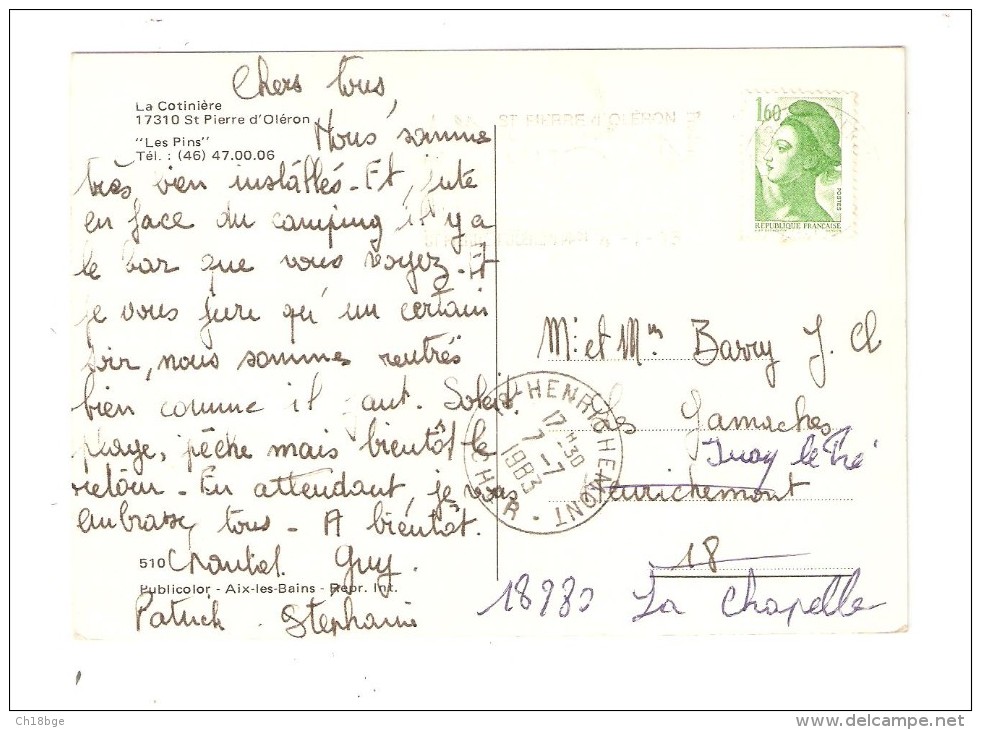 Chers tous,
La Cotinière
17310 St Pierre d'Oléron
"Les Pins"
Tél. : (46) 47.00.06
Nous somme
très bien installés - Et, jute
en face du camping il y a
le bar que vous voyez. Et
je vous jure qu'un certain
soir, nous sommes rentrés
bien comme il faut. Soleil.
plage, pêche mais bientôt le
retour. En attendant, je vous
embrasse tous - A bientôt.
Chantal Guy.
Patrick. Stephanie
510
Publicolor - Aix-les-Bains - Repr. Int.
ST PIERRE d'OLÉRON
1,60
POSTES
REPUBLIQUE FRANÇAISE
M. et Mm Barry J. Cl
Les Gamaches
Ivoy le Pré
Henrichemont
18
18380 La Chapelle
HENRICHEMONT
17 H 30
7-7
1983
CHER
Ch18bge
www.delcampe.net